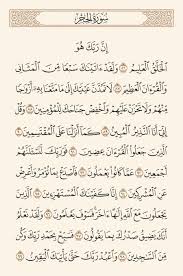 سُورَةُ الحِجْرِ
إِنَّ رَبَّكَ هُوَ
ٱلْخَلَّٰقُ ٱلْعَلِيمُ وَلَقَدْ ءَاتَيْنَٰكَ سَبْعًا مِّنَ ٱلْمَثَانِي
وَٱلْقُرْءَانَ ٱلْعَظِيمَ لَا تَمُدَّنَّ عَيْنَيْكَ إِلَىٰ مَا مَتَّعْنَا بِهِۦٓ أَزْوَٰجًا
مِّنْهُمْ وَلَا تَحْزَنْ عَلَيْهِمْ وَٱخْفِضْ جَنَاحَكَ لِلْمُؤْمِنِينَ وَقُلْ
إِنِّىٓ أَنَا ٱلنَّذِيرُ ٱلْمُبِينُ كَمَآ أَنزَلْنَا عَلَى ٱلْمُقْتَسِمِينَ
ٱلَّذِينَ جَعَلُوا۟ ٱلْقُرْءَانَ عِضِينَ فَوَرَبِّكَ لَنَسْـَٔلَنَّهُمْ
أَجْمَعِينَ عَمَّا كَانُوا۟ يَعْمَلُونَ فَٱصْدَعْ بِمَا تُؤْمَرُ وَأَعْرِضْ
عَنِ ٱلْمُشْرِكِينَ إِنَّا كَفَيْنَٰكَ ٱلْمُسْتَهْزِءِينَ ٱلَّذِينَ
يَجْعَلُونَ مَعَ ٱللَّهِ إِلَٰهًا ءَاخَرَ فَسَوْفَ يَعْلَمُونَ وَلَقَدْ نَعْلَمُ
أَنَّكَ يَضِيقُ صَدْرُكَ بِمَا يَقُولُونَ فَسَبِّحْ بِحَمْدِ رَبِّكَ وَكُن
مِّنَ ٱلسَّٰجِدِينَ وَٱعْبُدْ رَبَّكَ حَتَّىٰ يَأْتِيَكَ ٱلْيَقِينُ